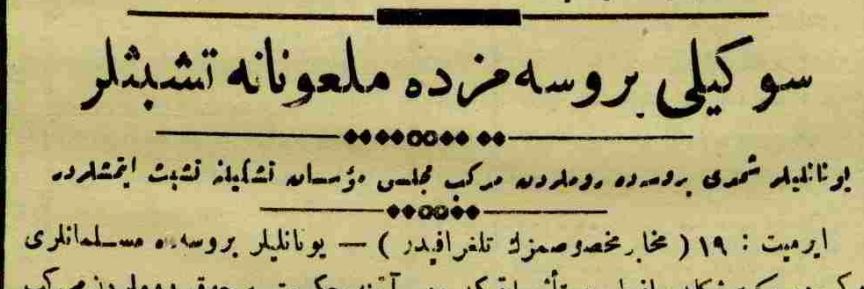 سوكیلی بروسه‌مزده ملعونانه تشبثلر
یونانلیلر شمدی بروسه‌ده روملردن مركب مجلس مؤسسان تشكیلنه تشبث ایتمشلردر
ایرمیت : ١٩ ( مخابر مخصوصمزك تلغرافیدر ) — یونانلیلر بروسه‌ده مسلمانلری